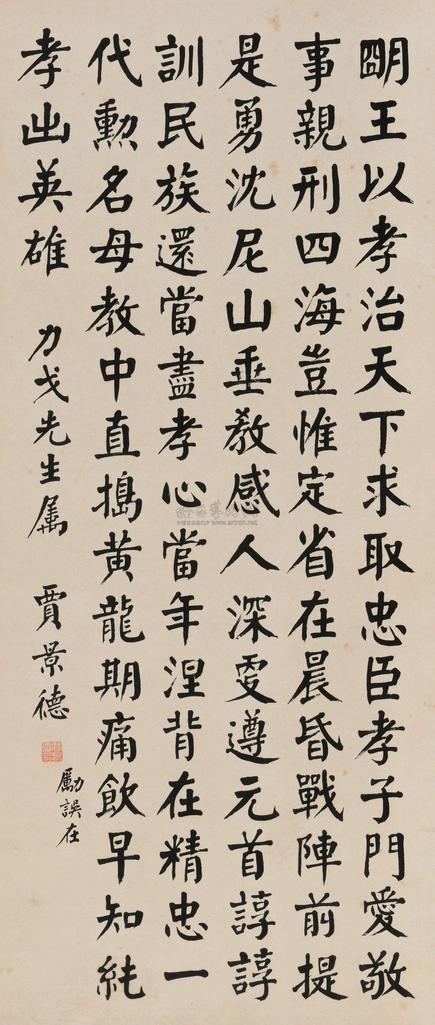 朙王以孝治天下求取忠臣孝子門愛敬
事親刑四海豈惟定省在晨昏戰陣前提
是勇沈尼山垂教感人深更遵元首諄諄
訓民族還當盡孝心當年涅背在精忠一
代勳名母教中直搗黃龍期痛飲早知純
孝出英雄 力戈先生属 賈景德
勵誤在
www.artron.net